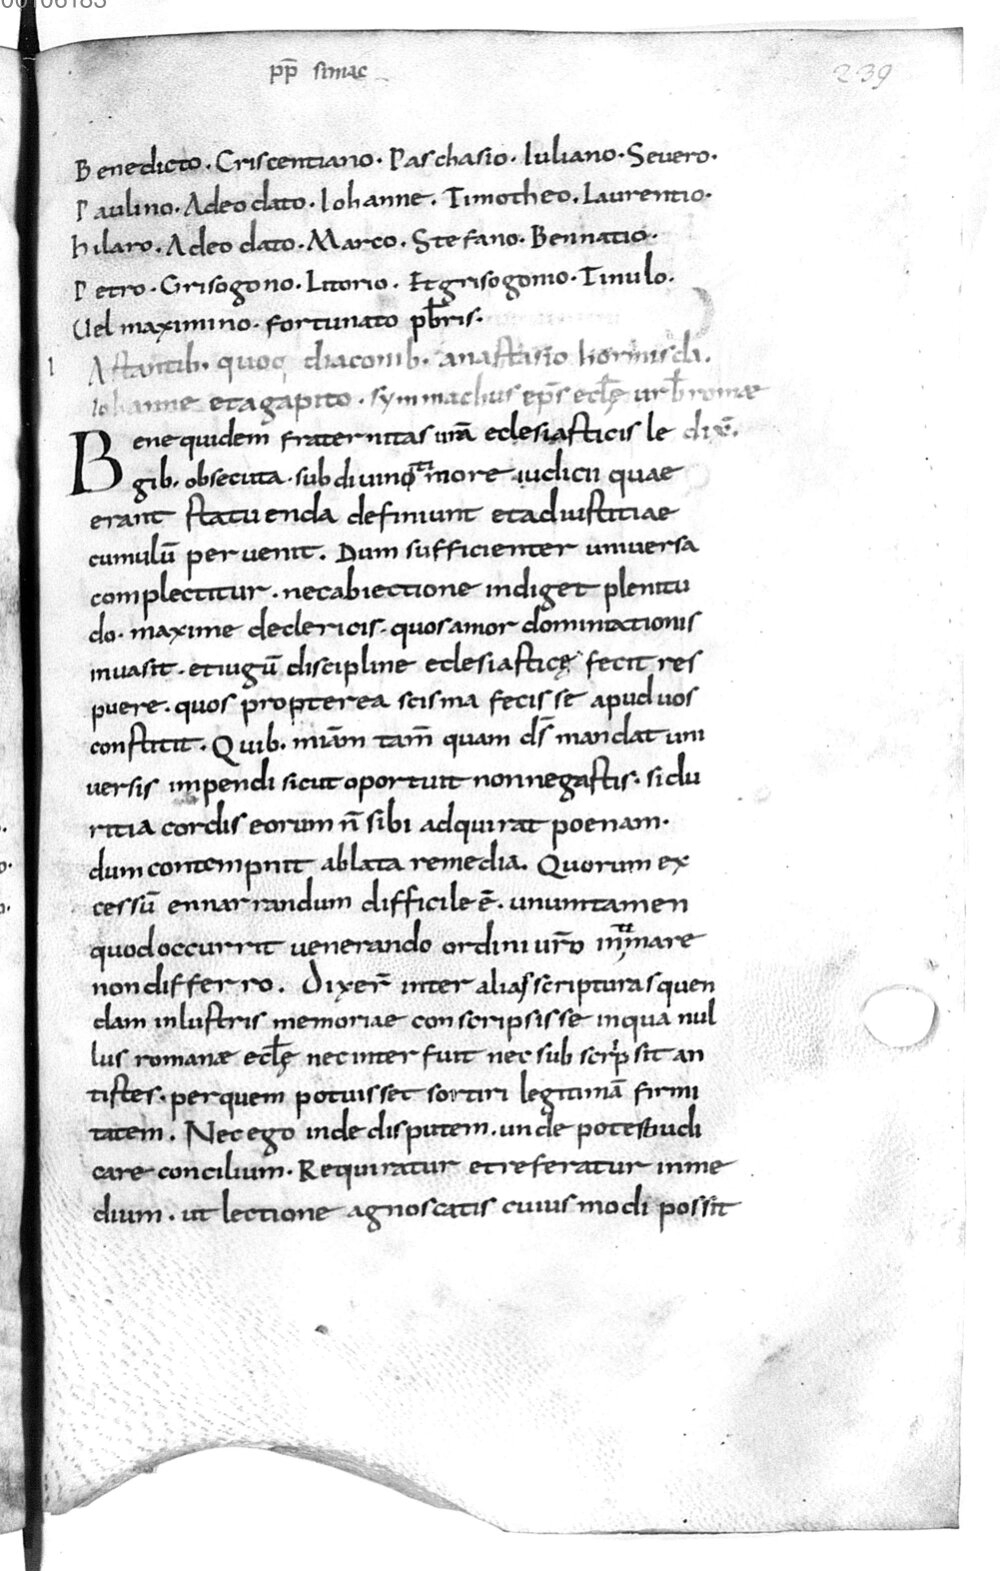 00106183
pp̄ simac
239
Benedicto · Criscentiano · Paschasio · Iuliano · Severo ·
Paulino · Adeodato · Iohanne · Timotheo · Laurentio ·
hilaro · Adeodato · Marco · Stefano · Bennatio ·
Petro · Grisogono · Litorio · Et grisogomo · Tinulo.
Uel maximino · fortunato pƀris ·
I Astantib· quoq; diaconib· anastasio hormisda.
Iohanne et agapito · symmachus ep̄s ecƚę urƀ romæ
Bene quidem fraternitas urā eclesiasticis le dix̄.
gib· obsecuta · sub divino timore iudicii quae
erant statuenda definiunt et ad iustitiae
cumulū pervenit. Dum sufficienter universa
complectitur · nec abiectione indiget plenitu
do · maxime de clericis · quos amor dominationis
invasit · et iugū discipline eclesiasticę fecit res
puere · quos propterea scisma fecisse apud vos
constitit · Quib· miām tam̄ quam d̄s mandat uni
versis impendi sicut oportuit non negastis · si du
ritia cordis eorum n̄ sibi adquirat poenam ·
dum contempnit ablata remedia. Quorum ex
cessū ennarrandum difficile ē · unum tamen
quod occurrit venerando ordini ur̄o intimare
non differro. Dixer̄ inter alias scripturas quen
dam inlustris memoriae conscripsisse in qua nul
lus romanæ ecƚę nec interfuit nec subscrip sit an
tistes · per quem potuisset sortiri legitimā firmi
tatem. Nec ego inde disputem · unde potest iudi
care concilium · Requiratur et referatur in me
dium · ut lectione agnoscatis cuius modi possit